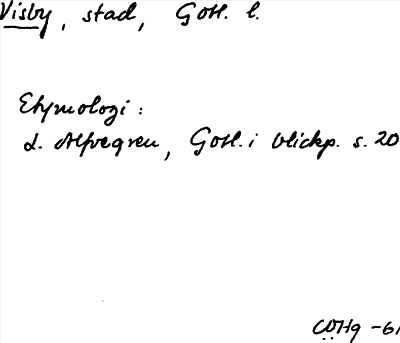 Visby, stad, Gotl. l.
Etymologi:
L. Alfvegren, Gotl. i blickp. s. 20
CÖHg -61